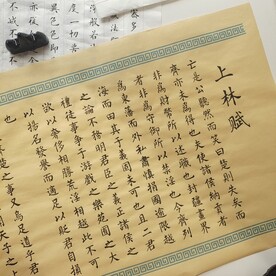 上林賦
亡是公听然而笑曰楚則失矣而
齊亦未為得也夫使諸侯納貢者
非為財幣所以述職也封疆畫界
者非為守禦所以禁淫也今齊列
為東藩而外私肅慎捐國踰限越
海而田其于義固未可也且二君
之論不務明君臣之義正諸侯之
禮徒事爭于游戲之樂苑囿之大
欲以奢侈相勝荒淫相越此不可
以揚名發譽而適足以貶君自損
也
楚之事又烏足道乎
天子之上
度一切
異色即
亦復